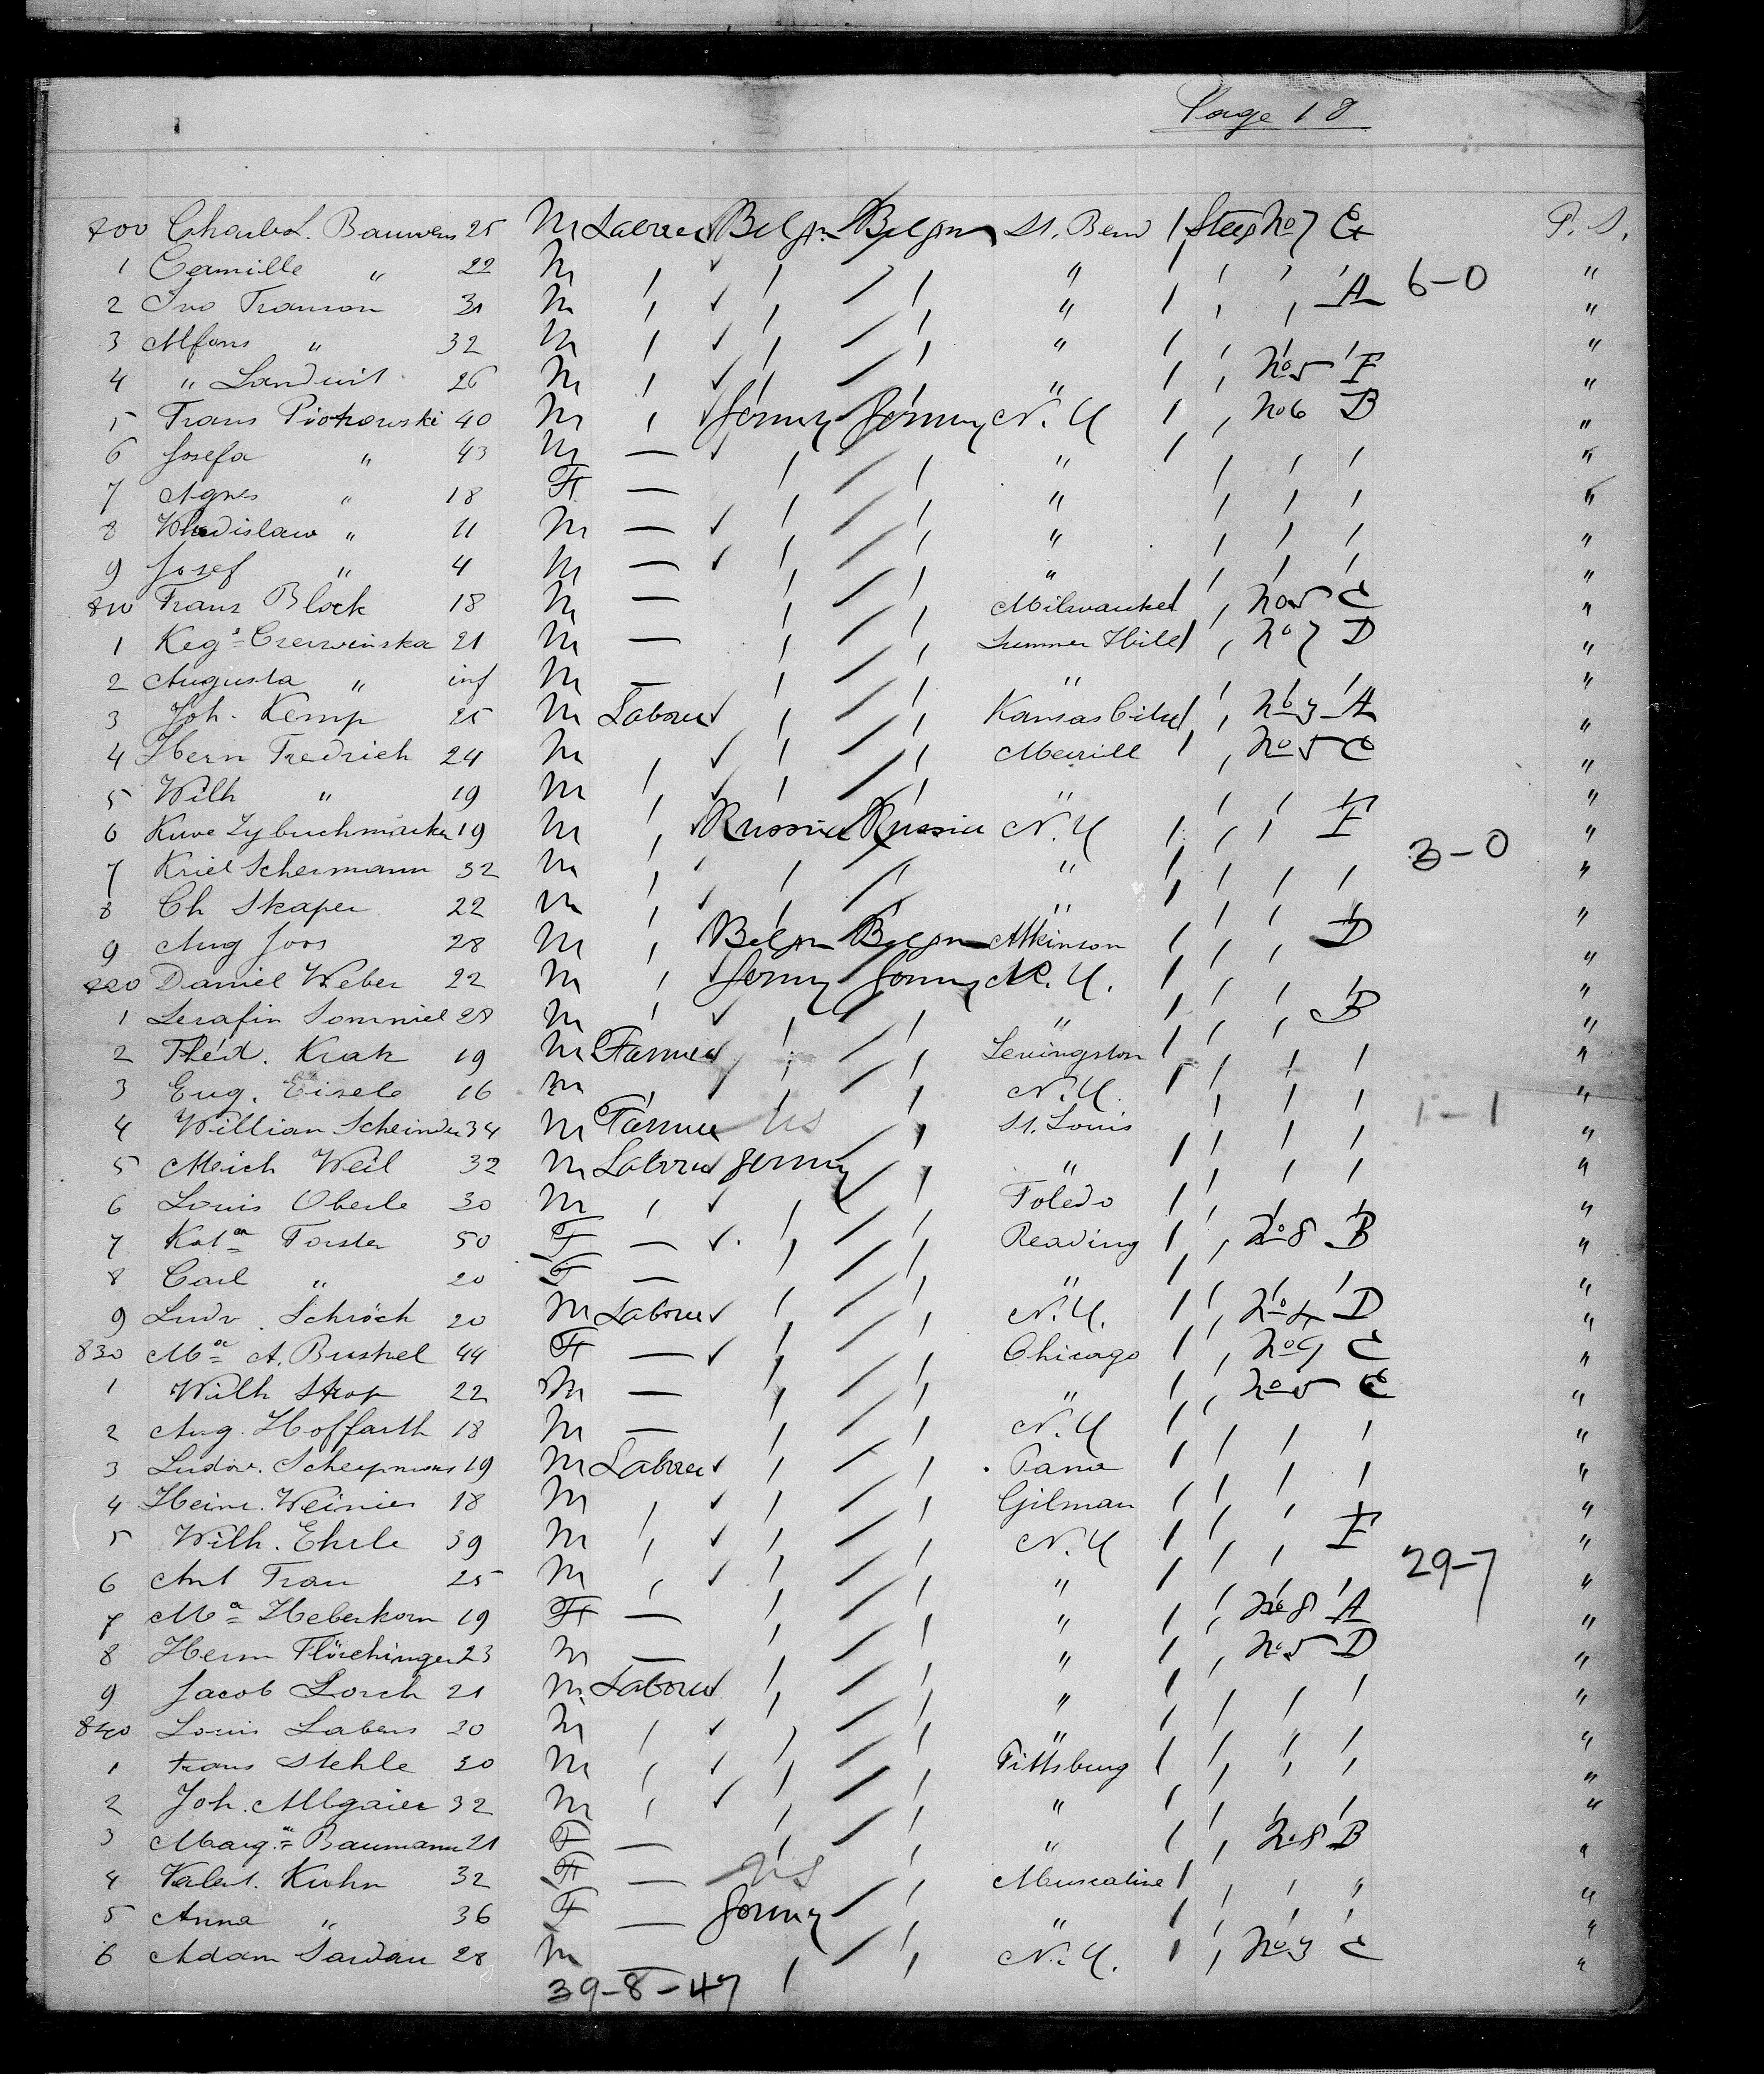 Page 18
800 Charles L. Bauwens 25 M Labourer Belgm Belgm St. Bend 1 Steep No 7 P. S.
1 Camille " 22 M ' ' ' " 1 ' ' ' "
2 Ivo Franson 31 M ' ' ' " 1 ' ' A 6-0 "
3 Alfons " 32 M ' ' ' " 1 ' ' ' "
4 " Landuit 26 M ' ' ' " 1 ' No 5 F "
5 Frans Piotrowski 40 M ' Germy Germy N. Y 1 ' No 6 B "
6 Josefa " 43 M — ' ' " 1 ' ' ' "
7 Agnes " 18 F — ' ' " ' ' ' "
8 Wladislaw " 11 M — ' ' " ' ' ' "
9 Josef " 4 M — ' ' " ' ' ' "
810 Franz Block 18 M — ' ' Milwaukee 1 ' No 5 C "
1 Kega Czerwinska 21 M — ' ' Summer Hill 1 ' No 7 D "
2 Augusta " inf M — ' ' " ' ' ' "
3 Joh. Kemp 25 M Labourer ' ' Kansas City 1 ' No 3 A "
4 Herm Fredrich 24 M ' ' ' Merrill 1 ' No 5 C "
5 Wilh " 19 M ' ' ' " ' ' ' "
6 19 M ' Russia Russia N. Y 1 ' ' F "
7 Kriel Schermann 32 M ' ' ' " 1 ' ' ' 3-0 "
8 Ch Skaper 22 M ' ' ' " 1 ' ' ' "
9 Aug Joos 28 M ' Belgm Belgm Atkinson 1 ' ' D "
820 Daniel Weber 22 M ' Germy Germy N. Y. 1 ' ' ' "
1 Serafin Sommiel 28 M ' ' ' " 1 ' ' B "
2 Theod. Krak 19 M Farmer ' ' Levingston 1 ' ' ' "
3 Eug. Eisele 16 M ' ' ' N. Y. 1 ' ' ' "
4 Willian Scheinder 34 M Farmer US ' St. Louis ' ' ' 1-1 "
5 Meich Weil 32 M Labourer Germy ' " 1 ' ' ' "
6 Louis Oberle 30 M ' ' ' Toledo 1 ' ' ' "
7 Kata Forster 50 F — ' ' Reading 1 ' No 8 B "
8 Carl " 20 F — ' ' " 1 ' ' ' "
9 Ludv. Schröck 20 M Labourer ' ' N. Y. 1 ' No 4 D "
830 Ma A. Buskel 44 F — ' ' Chicago 1 ' No 9 C "
1 Wilh Strop 22 M — ' ' " 1 ' No 5 C "
2 Aug. Hoffarth 18 M — ' ' N. Y 1 ' ' ' "
3 Ludov. 19 M Labourer ' ' Pana 1 ' ' ' "
4 Heinr. Weinier 18 M ' ' ' Gilman 1 ' ' ' "
5 Wilh. Ehrle 39 M ' ' ' N. Y 1 ' ' F "
6 Ant Frau 25 M ' ' ' " 1 ' ' ' 29-7 "
7 Ma Heberkorn 19 F — ' ' " 1 ' No 8 A "
8 Herm Flörchinger 23 M — ' ' " 1 ' No 5 D "
9 Jacob Lorch 21 M Labourer ' ' " 1 ' ' ' "
840 Louis Labens 30 M ' ' ' " 1 ' ' ' "
1 Frans Stehle 30 M ' ' ' Pittsburg 1 ' ' ' "
2 Joh. Allgaier 32 M ' ' ' " 1 ' ' ' "
3 Marga Baumann 21 F — ' ' " 1 ' No 8 B "
4 Valent. Kuhn 32 F — US ' Muscatine 1 ' ' " "
5 Anna " 36 F — Germy ' " 1 ' ' ' "
6 Adam 28 M ' ' N. Y. 1 ' No 3 C "
39-8-47